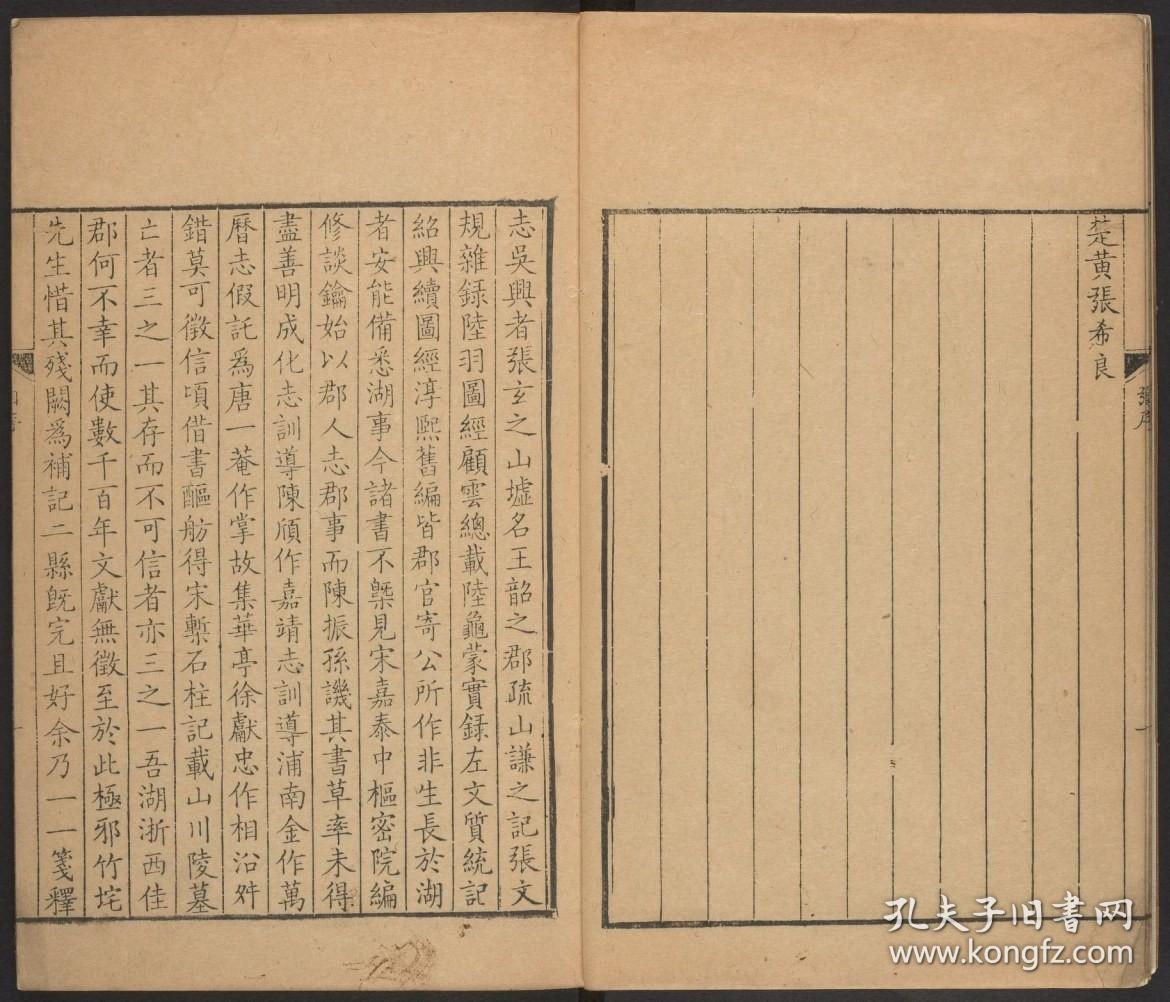 楚黄張希良
張序
志吳興者張玄之山墟名王韶之郡疏山謙之記張文
規雜録陸羽圖經顧雲總載陸龜蒙實録左文質統記
紹興續圖經淳熙舊編皆郡官寄公所作非生長於湖
者安能備悉湖事今諸書不槩見宋嘉泰中樞密院編
修談鑰始以郡人志郡事而陳振孫譏其書草率未得
盡善明成化志訓導陳頎作嘉靖志訓導浦南金作萬
曆志假託爲唐一菴作掌故集華亭徐獻忠作相沿舛
錯莫可徵信頃借書䤚舫得宋槧石柱記載山川陵墓
亡者三之一其存而不可信者亦三之一吾湖浙西佳
郡何不幸而使數千百年文獻無徵至於此極邪竹垞
先生惜其殘闕爲補記二縣既完且好余乃一一箋釋
孔夫子旧书网
www.kongfz.com